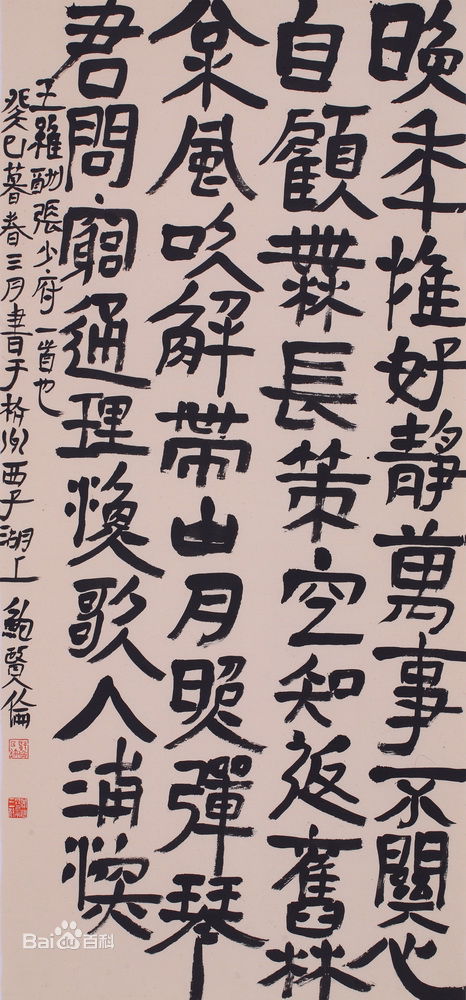 晚年惟好靜萬事不關心
自顧無長策空知返舊林
松風吹解帶山月照彈琴
君問窮通理漁歌入浦深
王維酬張少府一首也
癸巳暮春三月書于杭州西子湖上 鮑賢倫
Bai百科